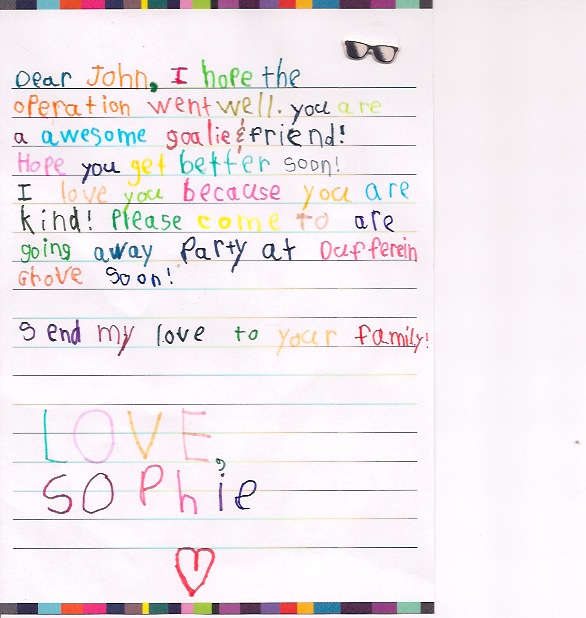 Dear John, I hope the
operation went well. you are
a awesome goalie & friend!
Hope you get better soon!
I love you because you are
kind! Please come to are
going away Party at Dufferein
Grove soon!
Send my love to your family!
LOVE,
SOPhie